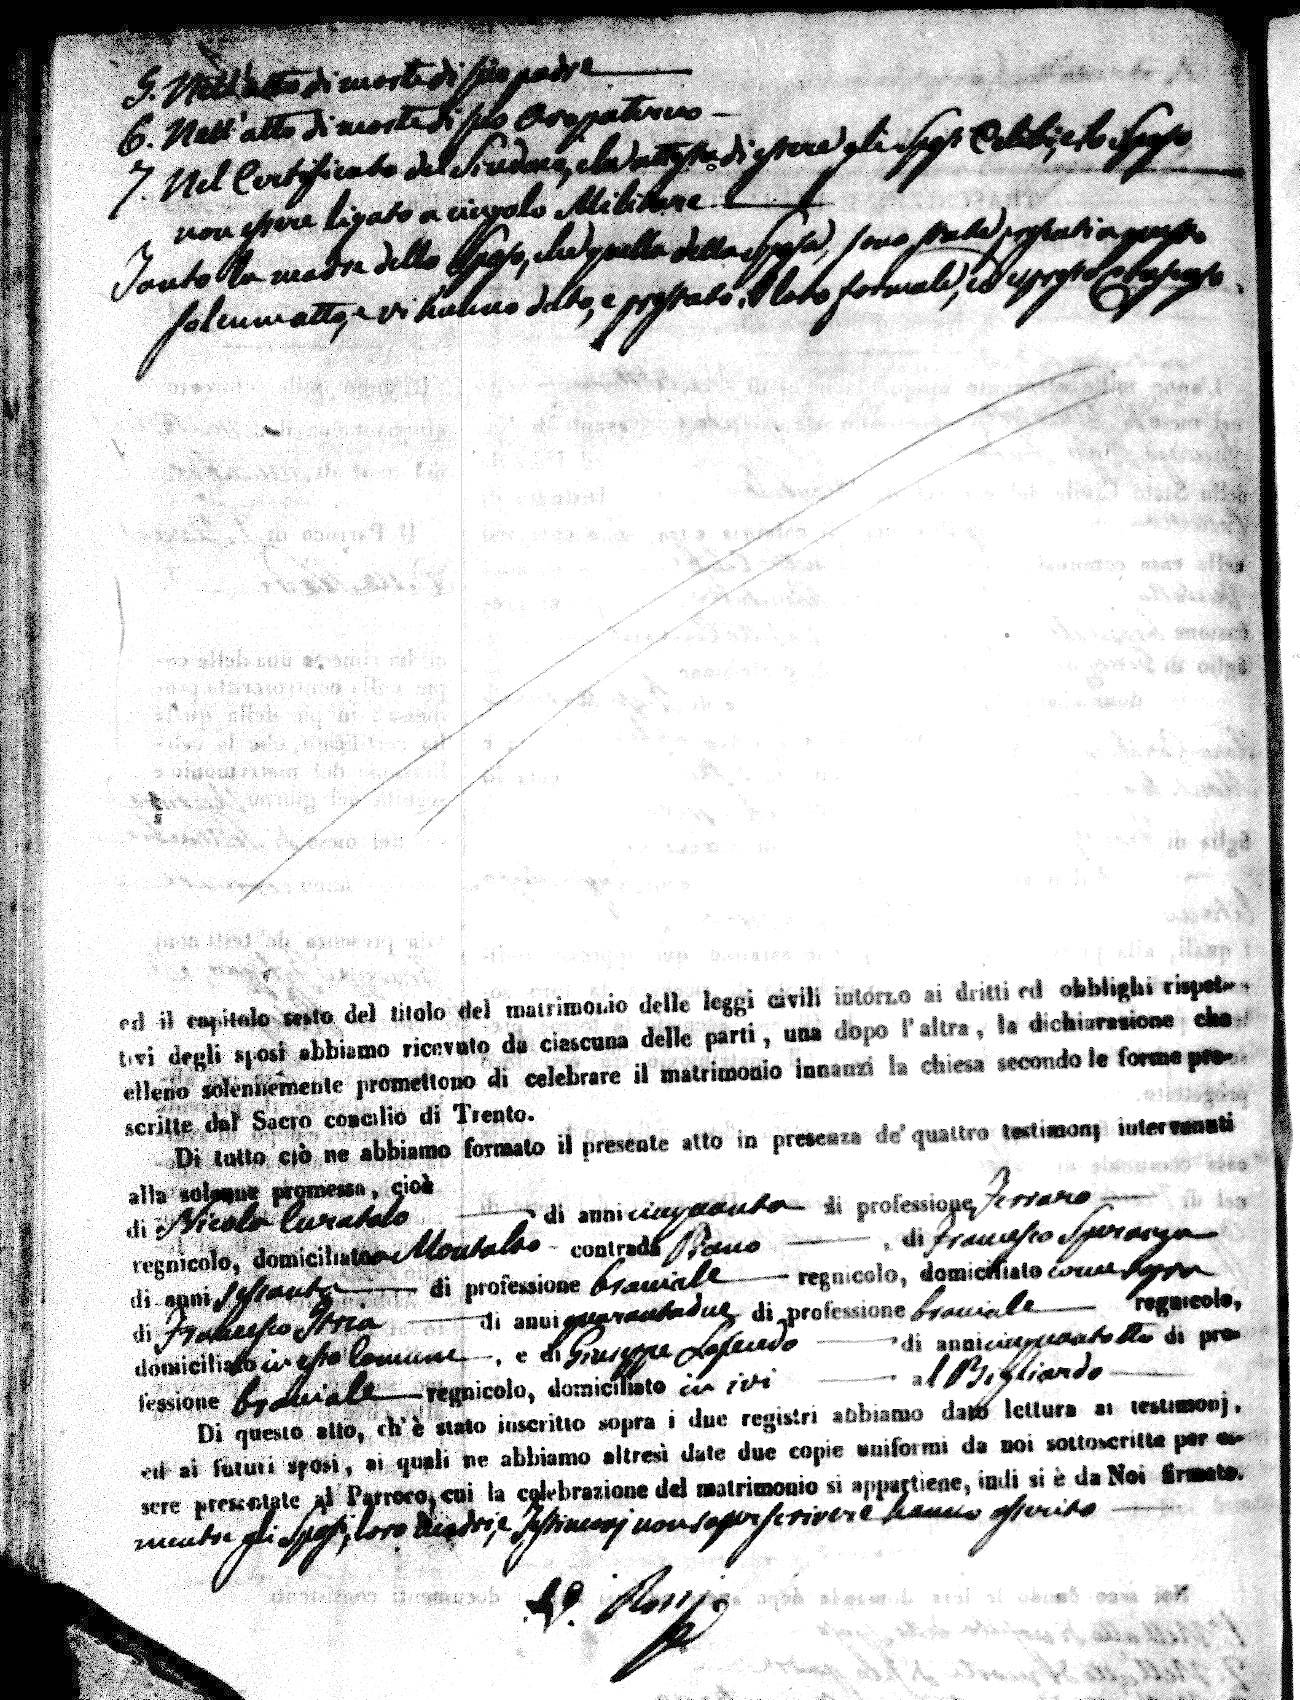 5. Nell'atto di morte di suo padre
6. Nell'atto di morte di suo Avo paterno
7. Nel Certificato del Sindaco, che attesta di essere gli Sposi Celibi, e lo Sposo
non essere ligato a vincolo Militare
Tanto la madre dello Sposo, che quella della Sposa, sono state presenti a questo
solenne atto, e vi hanno dato, e prestato il loro formale, ed espresso Consenso.
ed il capitolo sesto del titolo del matrimonio delle leggi civili intorno ai dritti ed obblighi rispet-
tivi degli sposi abbiamo ricevuto da ciascuna delle parti, una dopo l'altra, la dichiarazione che
elleno solennemente promettono di celebrare il matrimonio innanzi la chiesa secondo le forme pre-
scritte dal Sacro concilio di Trento.
Di tutto ciò ne abbiamo formato il presente atto in presenza de' quattro testimonj intervenuti
alla solenne promessa, cioè
di Nicola Curatolo di anni cinquanta di professione Ferraro
regnicolo, domiciliato a Montalbo contrada Piano, di Francesco Speranza
di anni sessanta di professione bracciale regnicolo, domiciliato come sopra
di Francesco di anni quarantadue di professione bracciale regnicolo,
domiciliato in esso Comune, e di Giuseppe di anni cinquantotto di pro-
fessione bracciale regnicolo, domiciliato in ivi al Bigliardo
Di questo atto, ch'è stato inscritto sopra i due registri abbiamo dato lettura ai testimonj,
ed ai futuri sposi, ai quali ne abbiamo altresì date due copie uniformi da noi sottoscritte per es-
sere presentate al Parroco, cui la celebrazione del matrimonio si appartiene, indi si è da Noi firmato.
mentre gli Sposi, loro Madri, e Testimonj non saper scrivere hanno asserito
Rossi